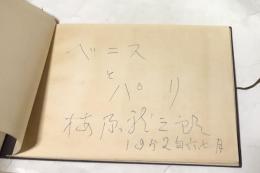 ベニス
と
パリ
梅原龍三郎
1952年六七月